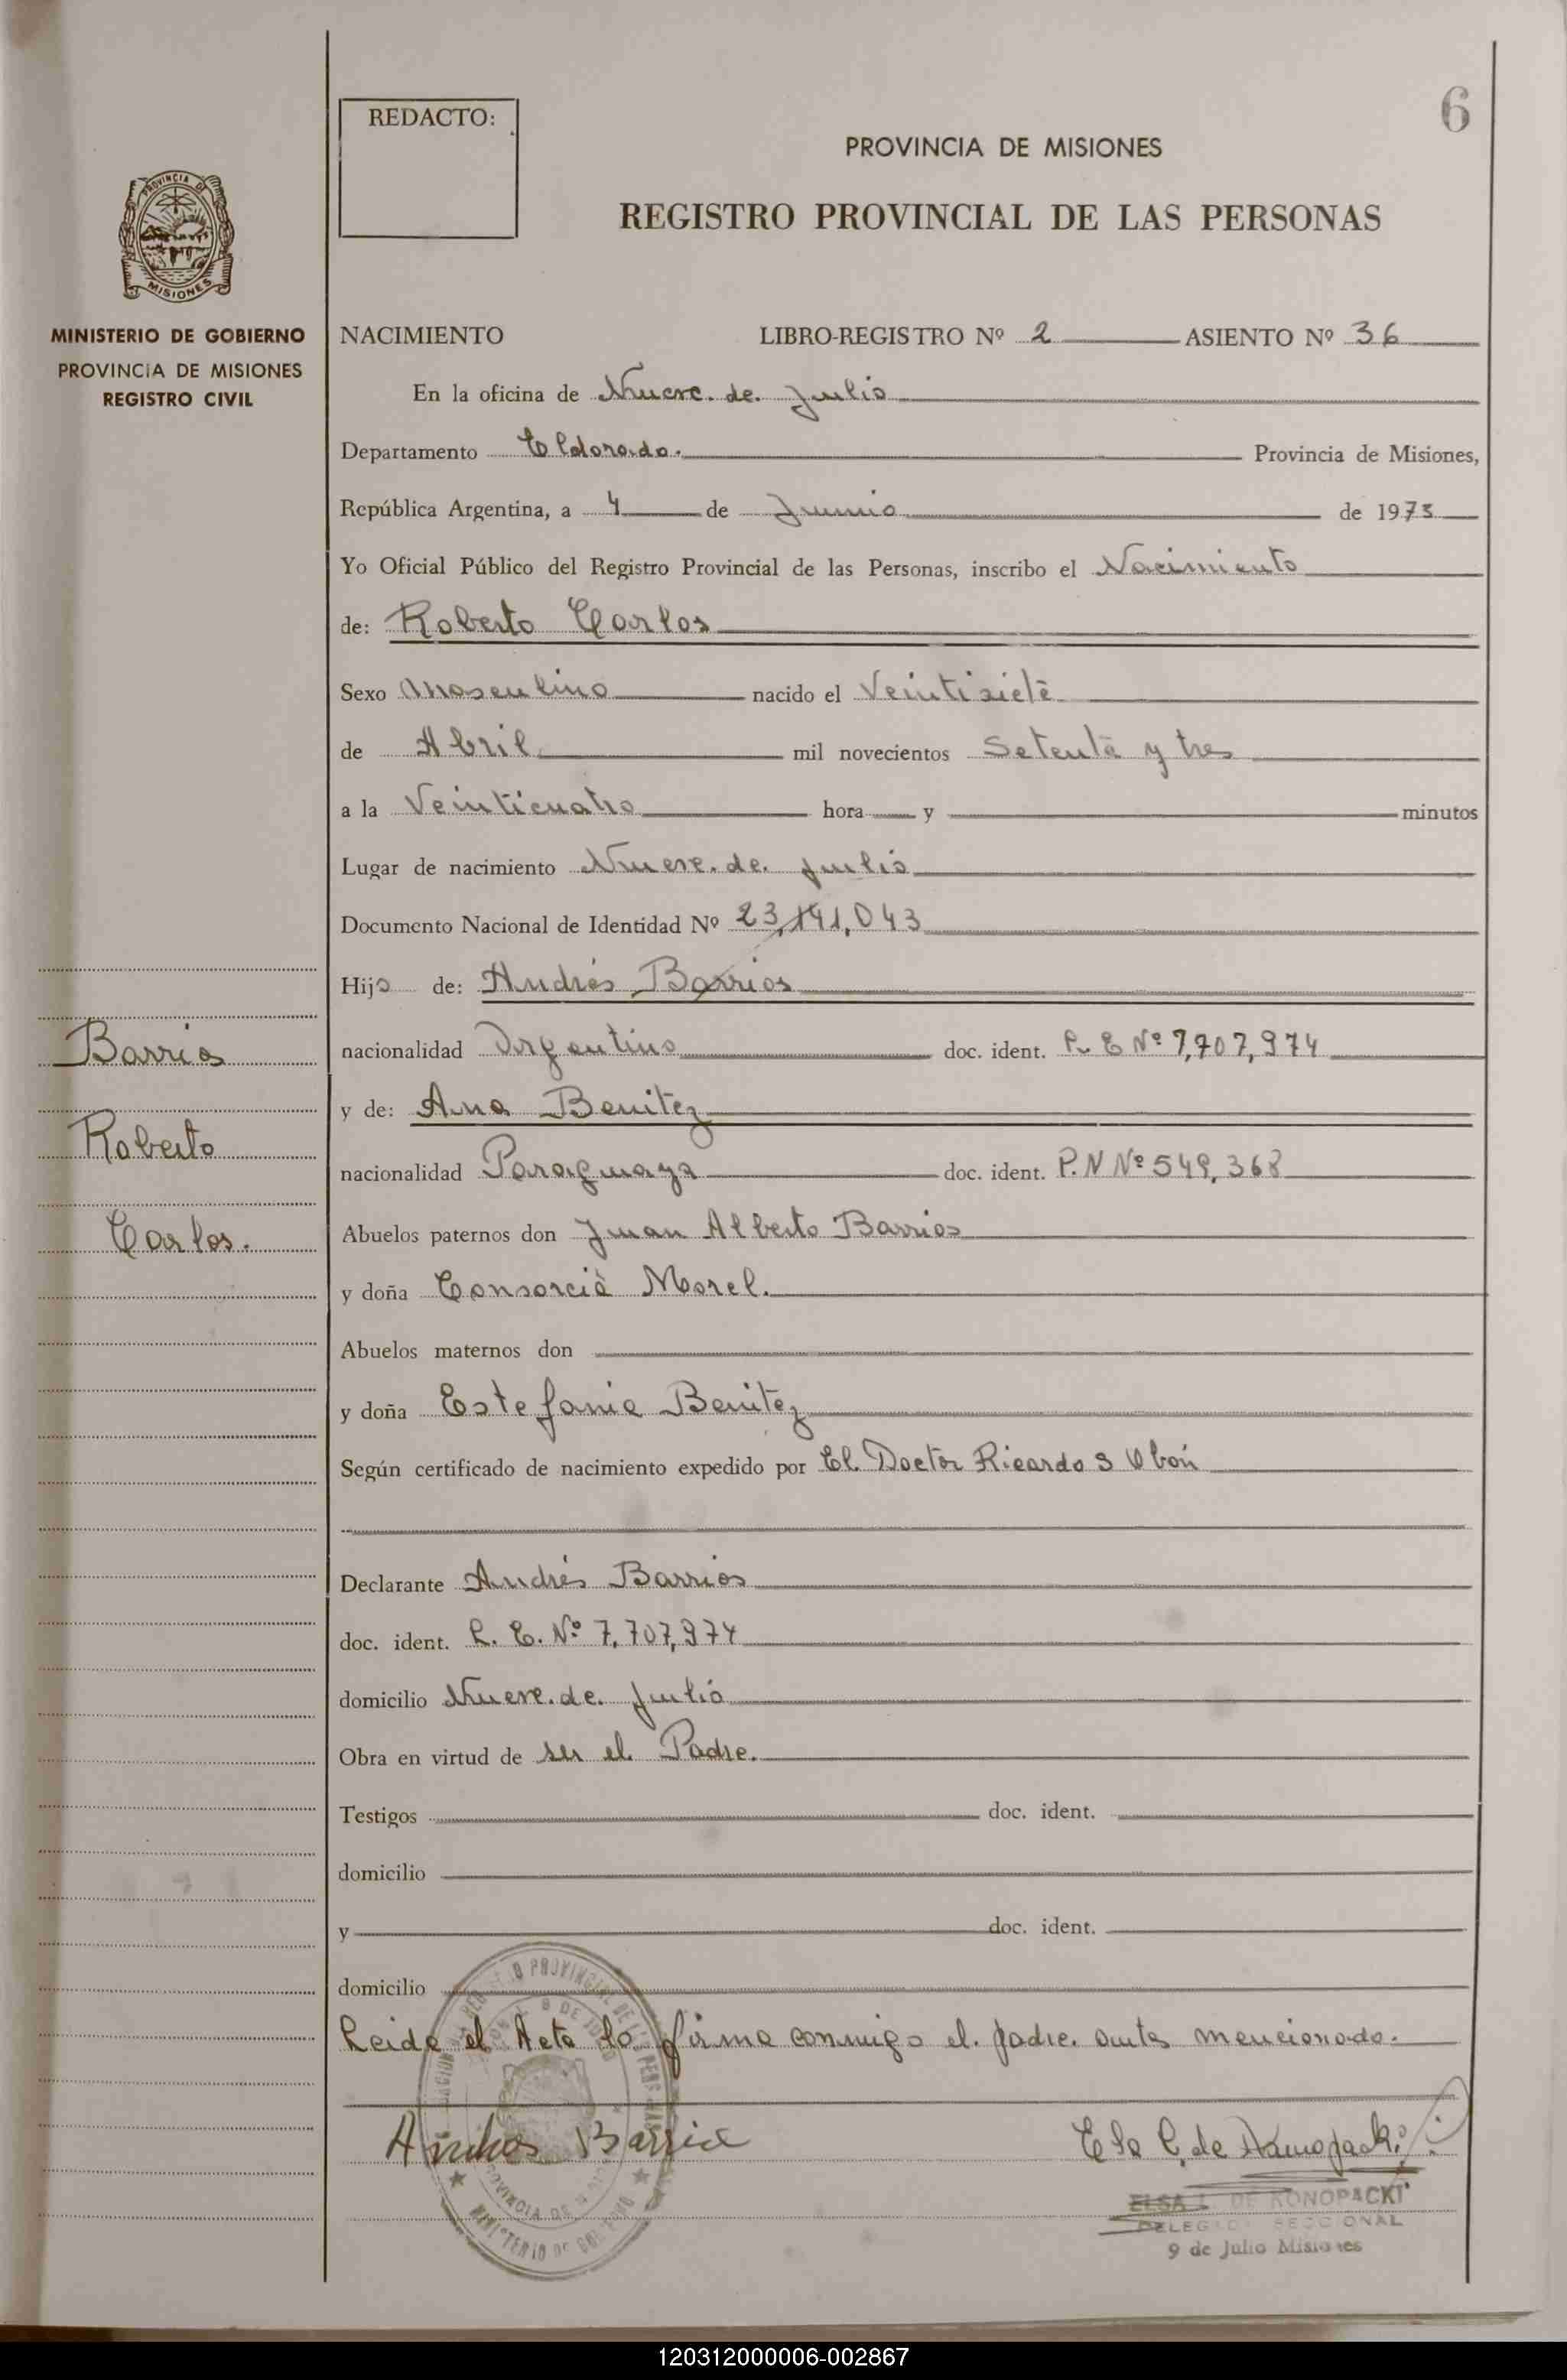 6
REDACTO:
PROVINCIA DE MISIONES
REGISTRO PROVINCIAL DE LAS PERSONAS
PROVINCIA DE
MISIONES
MINISTERIO DE GOBIERNO
PROVINCIA DE MISIONES
REGISTRO CIVIL
NACIMIENTO LIBRO-REGISTRO Nº 2 ASIENTO Nº 36
En la oficina de Nueve de Julio
Departamento Eldorado. Provincia de Misiones,
República Argentina, a 4 de Junio de 1973
Yo Oficial Público del Registro Provincial de las Personas, inscribo el Nacimiento
de: Roberto Carlos
Sexo Masculino nacido el Veintisiete
de Abril mil novecientos Setenta y tres
a la Veinticuatro hora y minutos
Lugar de nacimiento Nueve de Julio
Documento Nacional de Identidad Nº 23,191,043
Hijo de: Andrés Barrios
nacionalidad Argentino doc. ident. L. E Nº 7,707,974
y de: Ana Benitez
nacionalidad Paraguaya doc. ident. P.N Nº 549,368
Abuelos paternos don Juan Alberto Barrios
y doña Consorcia Morel.
Abuelos maternos don
y doña Estefania Benitez
Según certificado de nacimiento expedido por El Doctor Ricardo S Obón
Declarante Andrés Barrios
doc. ident. L. E. Nº 7,707,974
domicilio Nueve de Julio
Obra en virtud de ser el Padre.
Testigos doc. ident.
domicilio
y doc. ident.
domicilio
Leida el Acta la firma conmigo el padre antes mencionado.
Barrios
Roberto
Carlos.
Andres Barrios
Elsa L. de Konopacki
ELSA L. DE KONOPACKI
DELEGADA SECCIONAL
9 de Julio Misiones
120312000006-002867